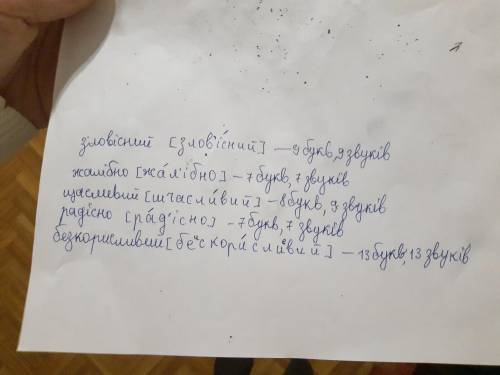 зловісний [злов'íсний] – 9 букв, 9 звуків
жалібно [жáл'ібно] – 7 букв, 7 звуків
щасливий [шчасли́вий] – 8 букв, 9 звуків
радісно [рáд'існо] – 7 букв, 7 звуків
безкорисливий [беᶻскори́слиᵉвий] – 13 букв, 13 звуків